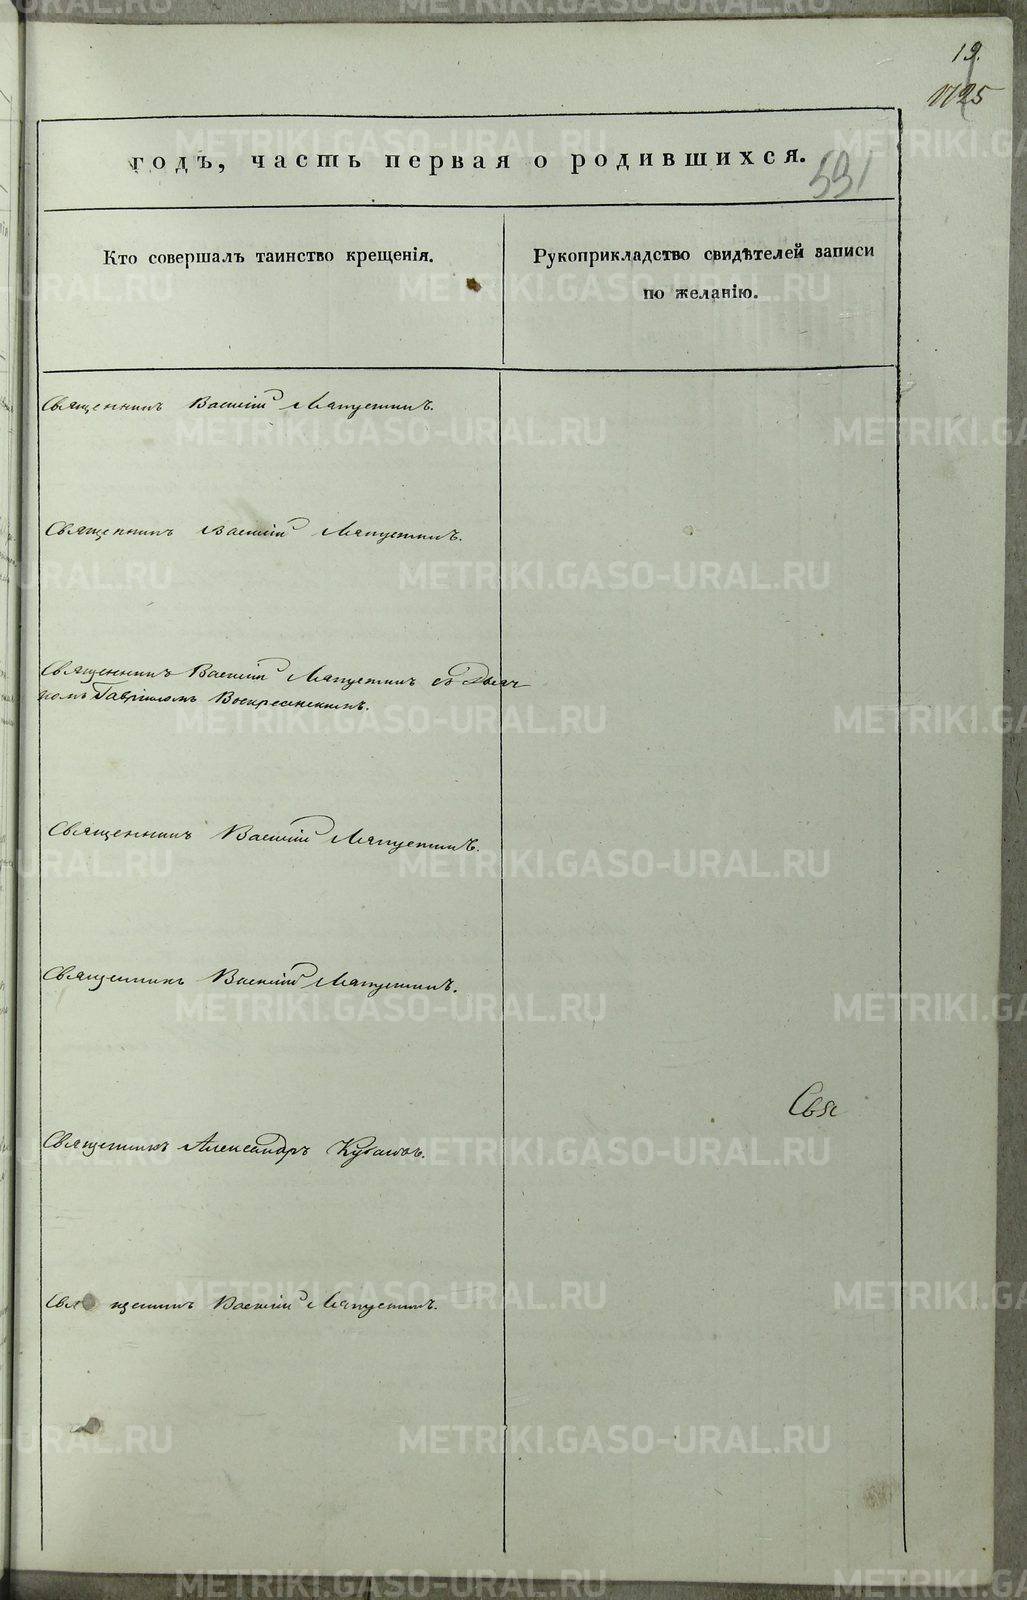 19.
1725
годъ, часть первая о родившихся.
531
Кто совершалъ таинство крещенія.
Рукоприкладство свидѣтелей записи
по желанію.
Священникъ Василій Ляпустинъ.
Священникъ Василій Ляпустинъ.
Священникъ Василій Ляпустинъ съ Дьяч
комъ Гавріиломъ Воскресенскимъ.
Священникъ Василій Ляпустинъ.
Священникъ Василій Ляпустинъ.
Свя
Священникъ Александръ
Священникъ Василій Ляпустинъ.
METRIKI.GASO-URAL.RU